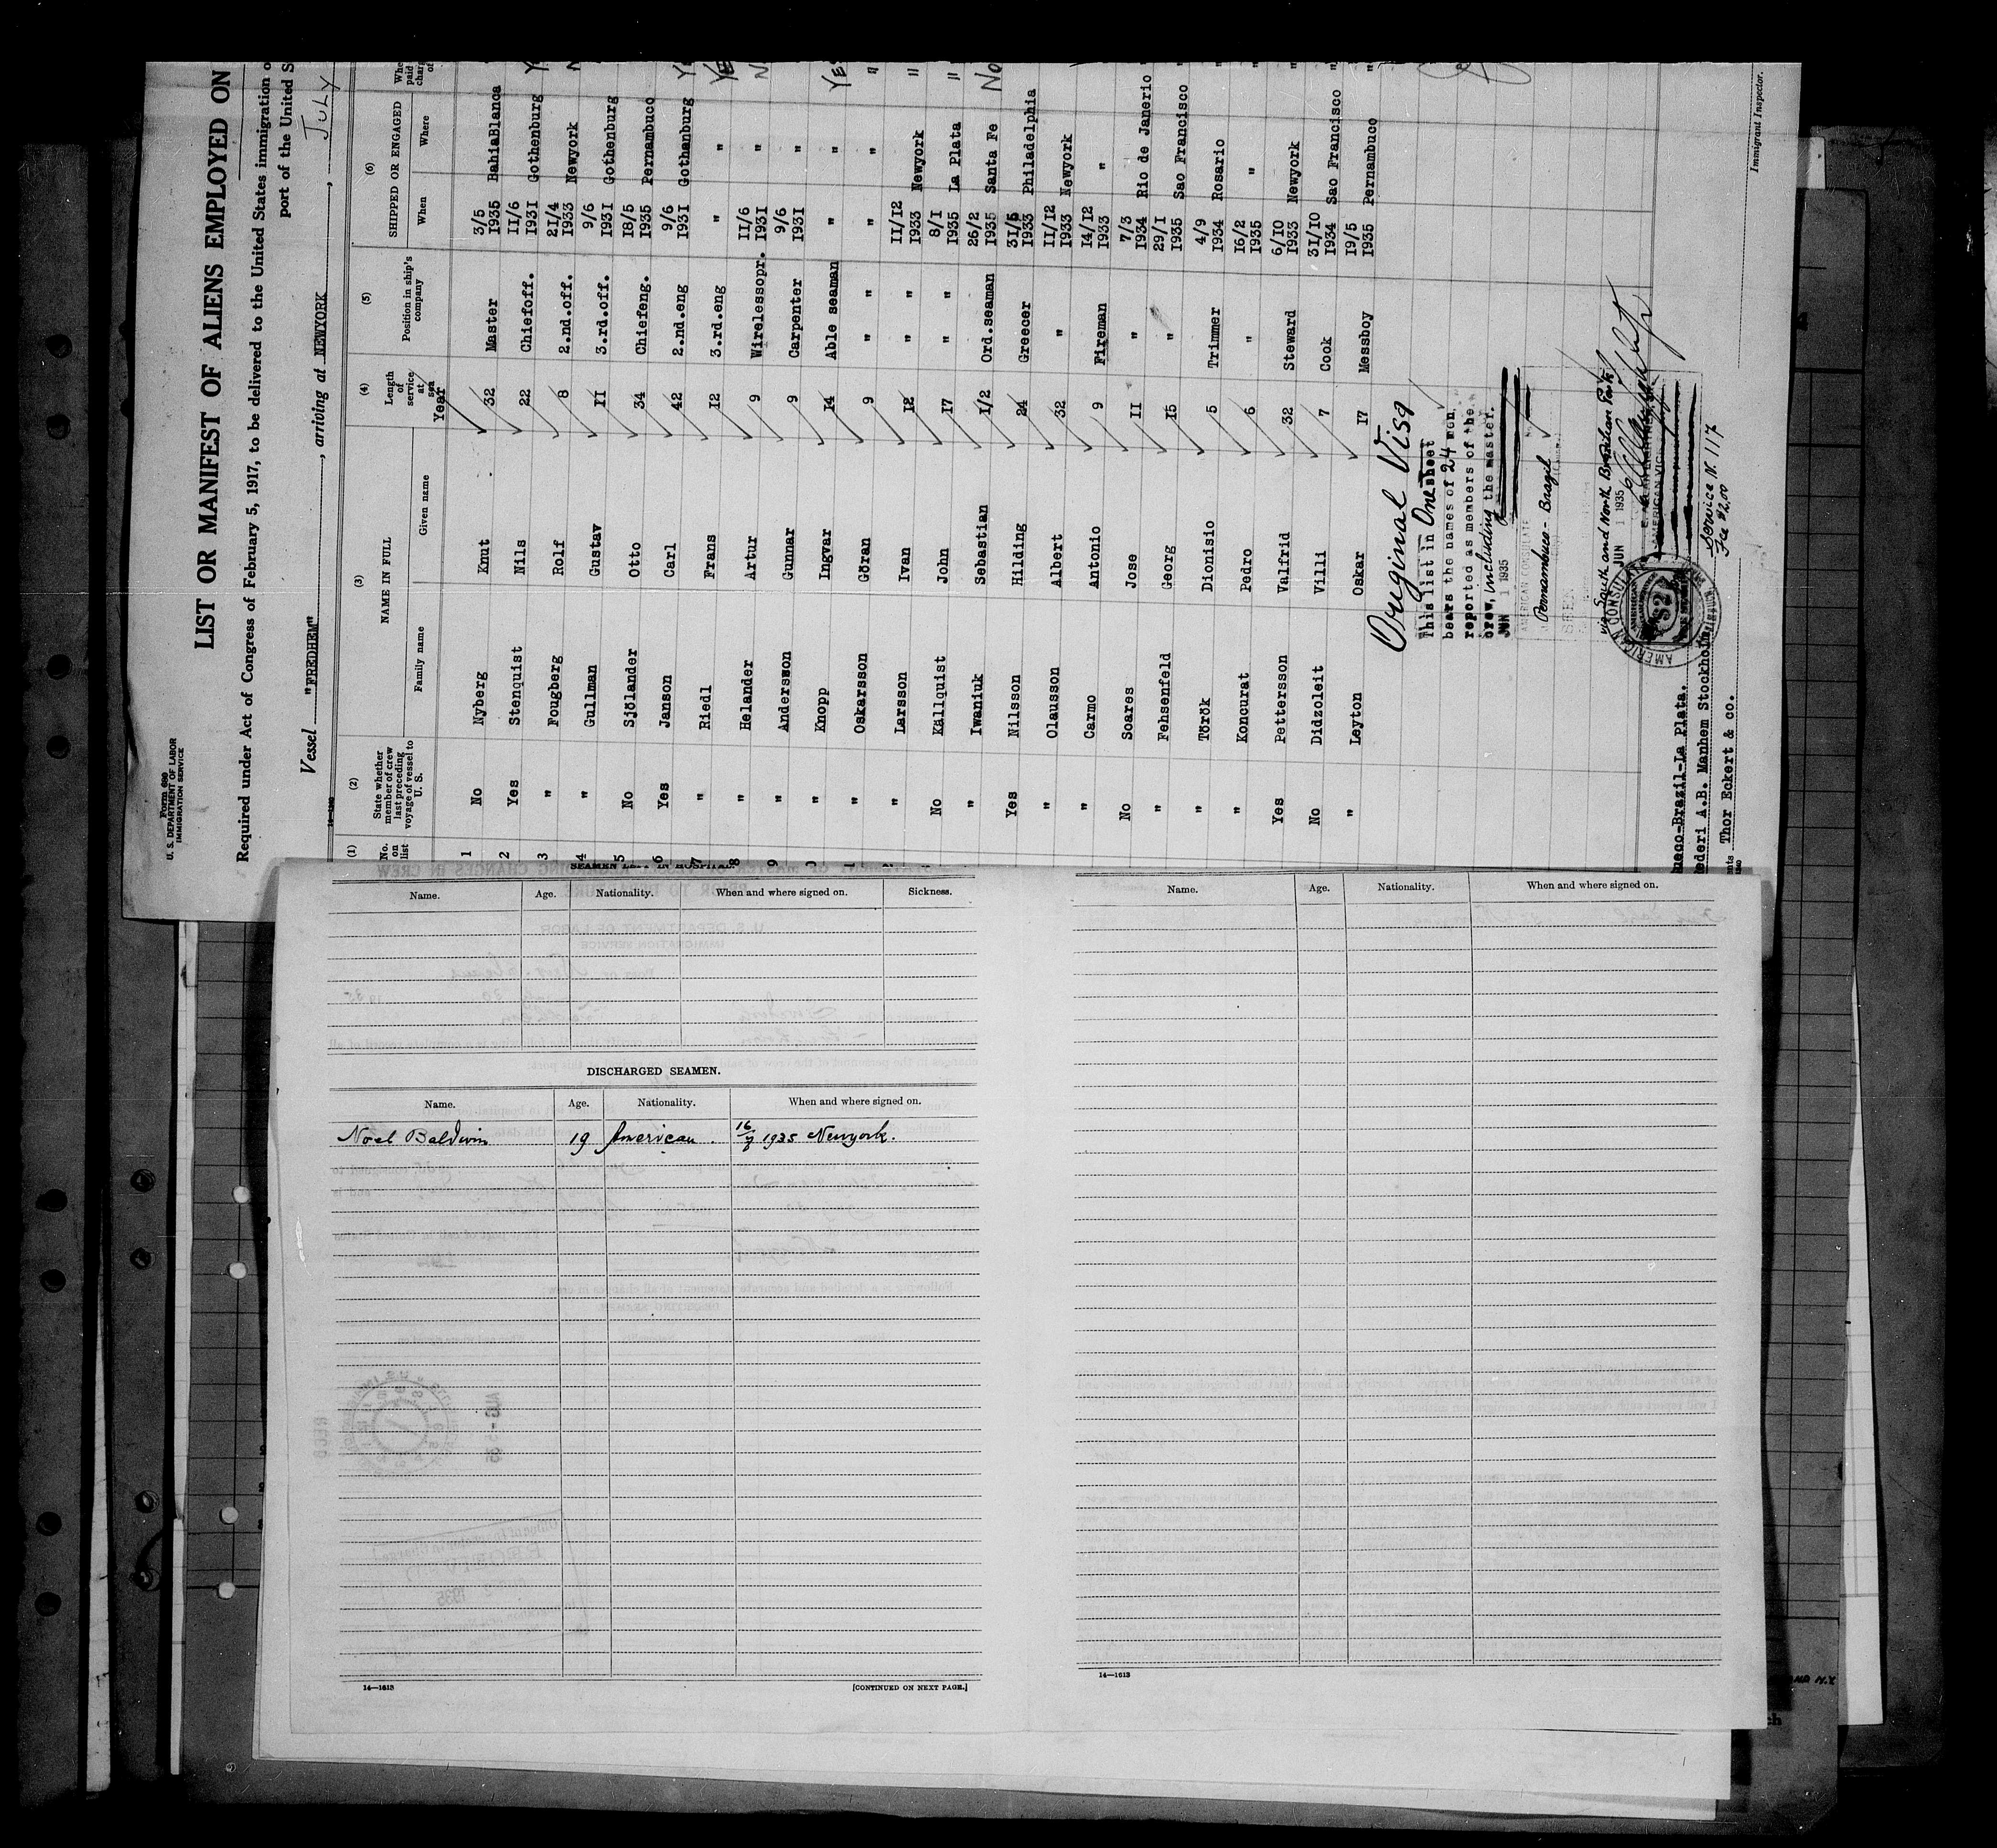 Form 680
U. S. DEPARTMENT OF LABOR
IMMIGRATION SERVICE
LIST OR MANIFEST OF ALIENS EMPLOYED ON
Required under Act of Congress of February 5, 1917, to be delivered to the United States immigration o
port of the United S
Vessel "FREDHEM", arriving at NEWYORK, JULY
(1) (2) (3) (4) (5) (6)
No. on list State whether member of crew last preceding voyage of vessel to U. S. NAME IN FULL Family name Given name Length of service at sea Year Position in ship's company SHIPPED OR ENGAGED When Where Whe paid charg of
1 No Nyberg Knut 32 Master 3/5 1935 BahiaBlanca
2 Yes Stenquist Nils 22 Chiefoff. 11/6 1931 Gothenburg Y
3 " Fougberg Rolf 8 2.nd.off. 21/4 1933 Newyork N
4 " Gullman Gustav 11 3.rd.off. 9/6 1931 Gothenburg
5 No Sjölander Otto 34 Chiefeng. 18/5 1935 Pernambuco
6 Yes Janson Carl 42 2.nd.eng 9/6 1931 Gothanburg Y
7 " Riedl Frans 12 3.rd.eng " " YE
8 " Helander Artur 9 Wirelessopr. 11/6 1931 " N
9 " Andersson Gunnar 9 Carpenter 9/6 1931 "
0 " Knopp Ingvar 14 Able seaman " " YES
1 " Oskarsson Göran 9 " " " "
" Larsson Ivan 12 " 11/12 1933 Newyork "
No Källquist John 17 " 8/1 1935 La Plata "
" Iwaniuk Sebastian 1/2 Ord.seaman 26/2 1935 Santa Fe No
Yes Nilsson Hilding 24 Greecer 31/5 1933 Philadelphia
" Olausson Albert 32 " 11/12 1933 Newyork
" Carmo Antonio 9 Fireman 14/12 1933 "
No Soares Jose 11 " 7/3 1934 Rio de Janerio "
" Fehsenfeld Georg 15 " 29/1 1935 Sao Francisco "
" Török Dionisio 5 Trimmer 4/9 1934 Rosario "
" Koncurat Pedro 6 " 16/2 1935 " "
Yes Pettersson Valfrid 32 Steward 6/10 1933 Newyork "
No Didzoleit Villi 7 Cook 31/10 1934 Sao Francisco "
" Leyton Oskar 17 Messboy 19/5 1935 Pernambuco "
Original Visa
This list in One sheet
bears the names of 24 men
reported as members of the
crew, including the master.
JUN 1 1935
AMERICAN CONSULATE
Pernambuco - Brazil
SEEN
via South and North Brazilian Ports
JUN 1 1935
AMERICAN VIC
AMERICAN CONSUL
Service N. 117
Fee $2.00
Immigrant Inspector.
ueco-Brazil-La Plata.
ederi A.B. Manhem Stockholm
nts Thor Eckert & co.
SEAMEN LEFT IN HOSPITAL
Name. Age. Nationality. When and where signed on. Sickness.
DISCHARGED SEAMEN.
Name. Age. Nationality. When and where signed on.
Noel Baldwin 19 American. 16/7 1935 Newyork.
14—1613
[CONTINUED ON NEXT PAGE.]
Name. Age. Nationality. When and where signed on.
14—1613